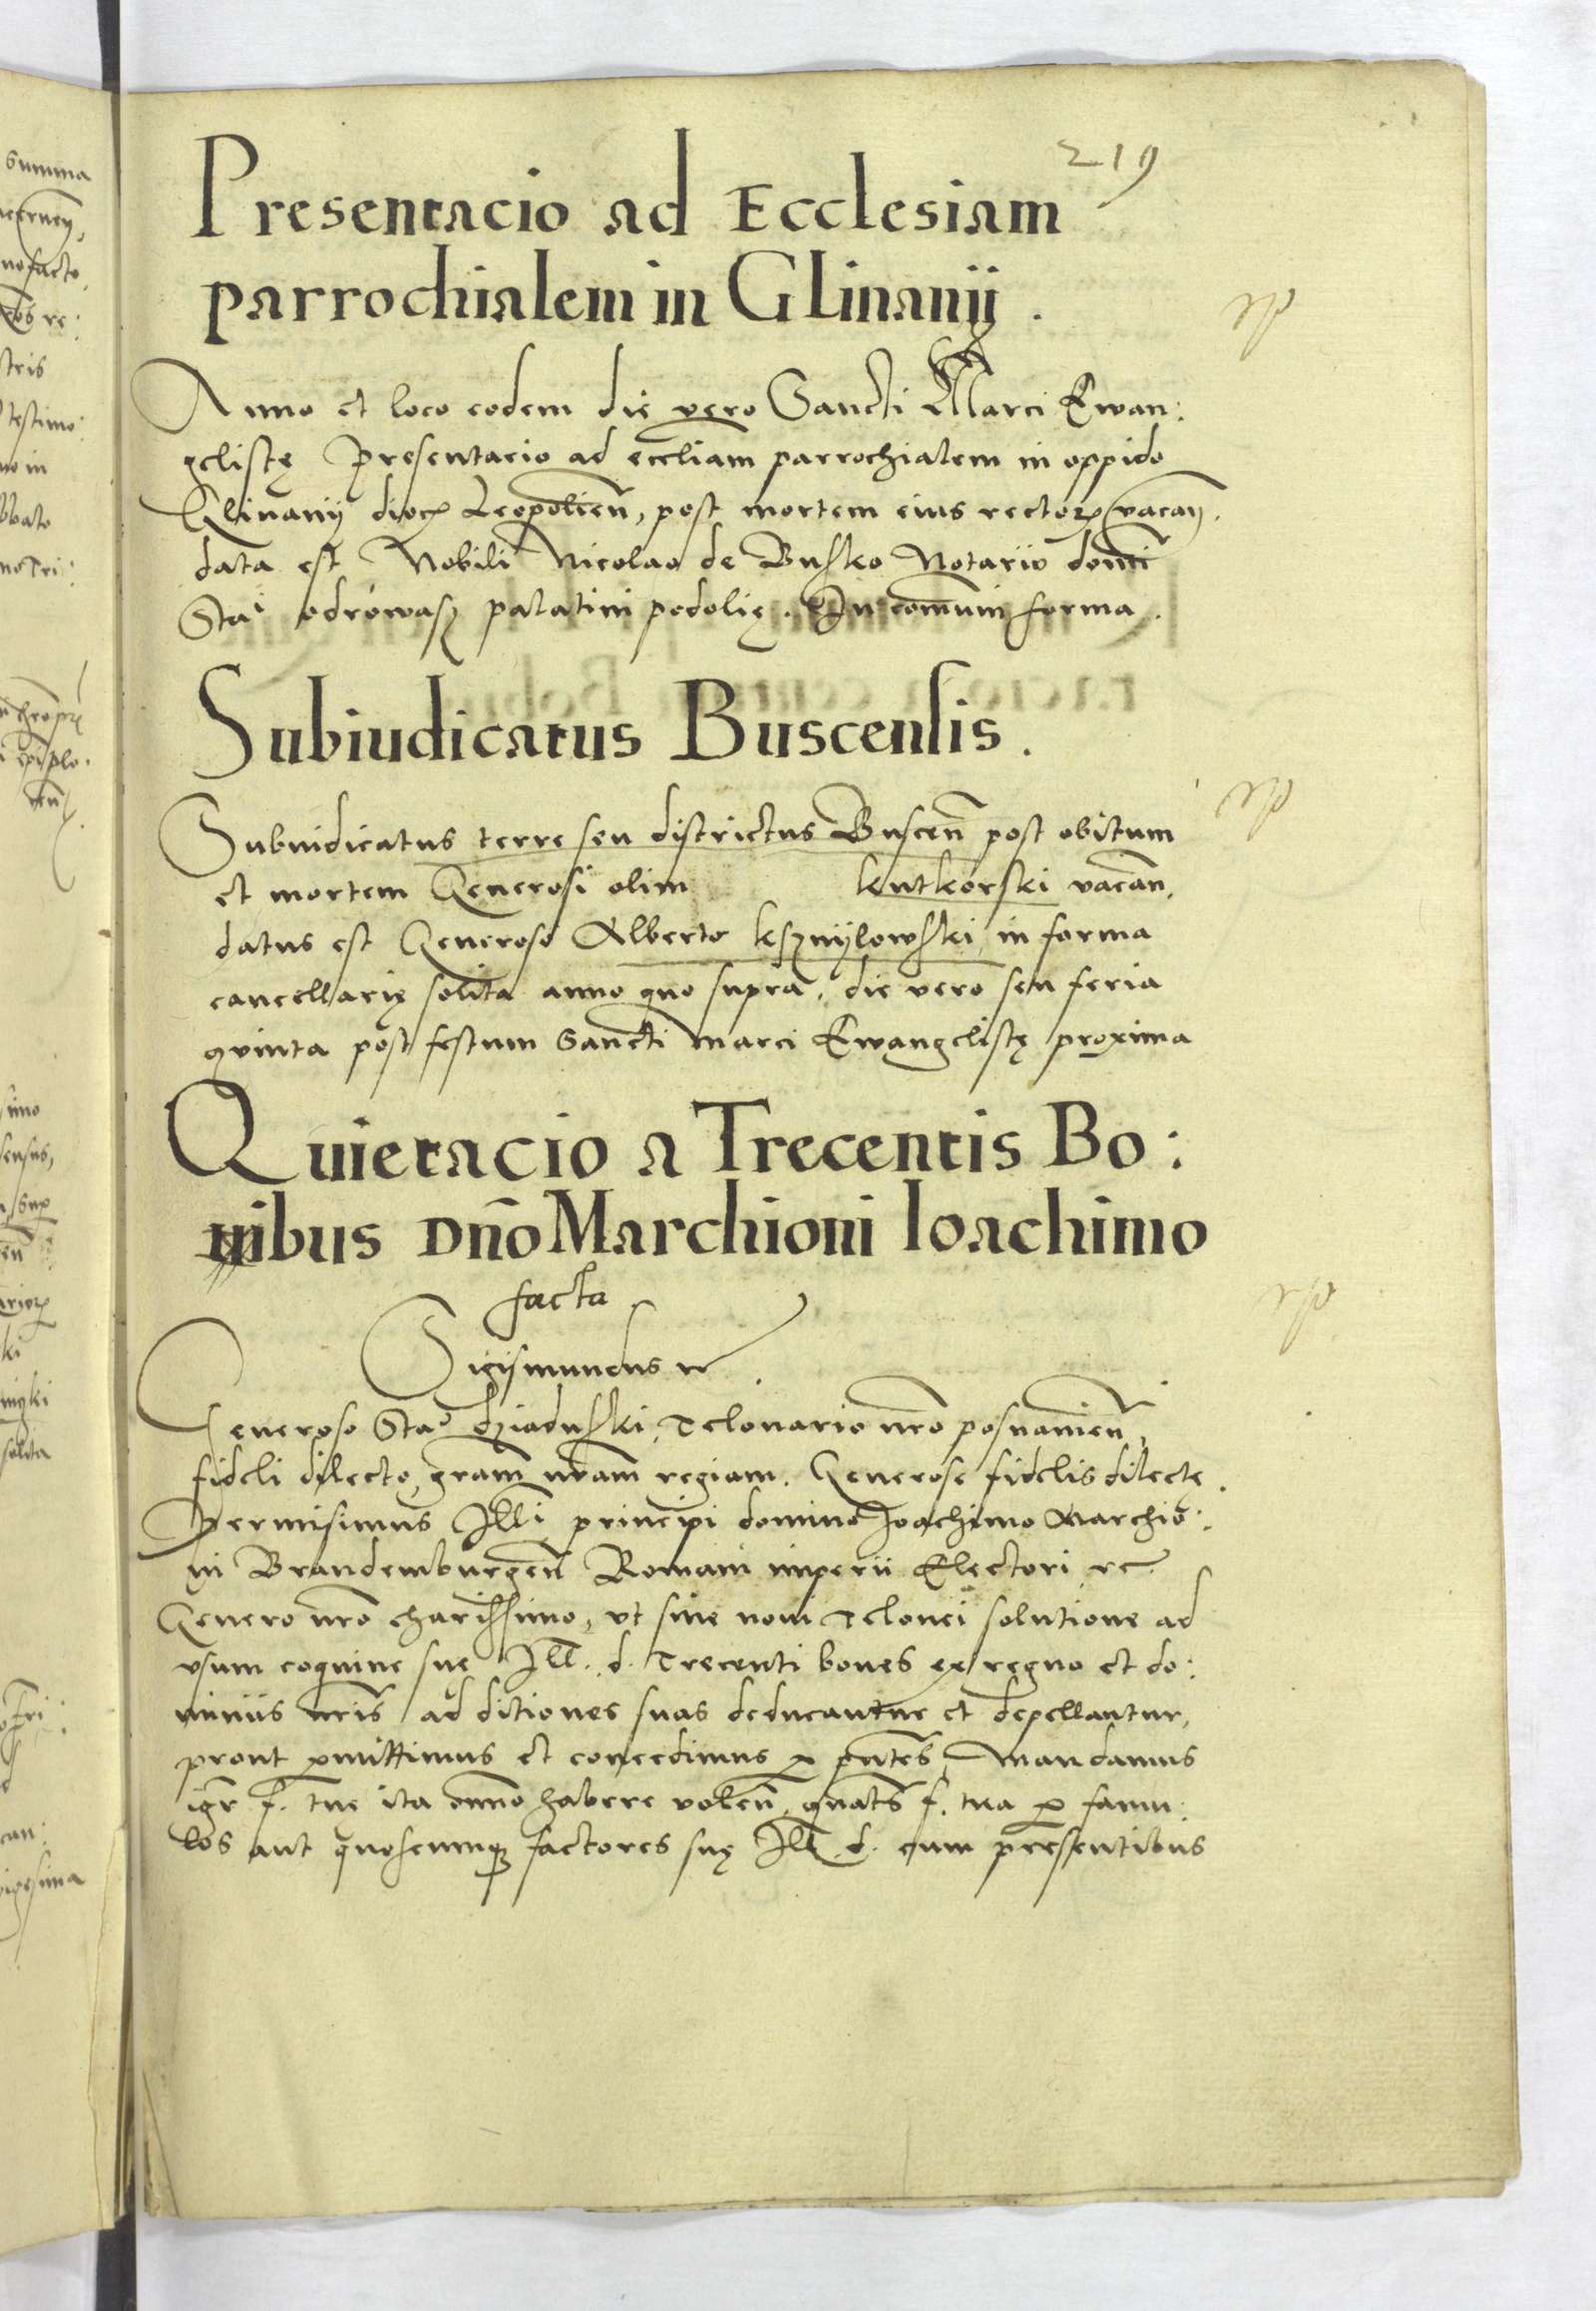 219
Presentacio ad Ecclesiam
parrochialem in Glinanÿ.
Anno et loco eodem die vero Sancti Marci Ewan:
gelistę Presentacio ad eccliam parrochialem in oppido
Glinanÿ dioc Leopolien̄, post mortem eius rector vacan.
data est Nobili Nicolao de Busko Notario
Sta odrowasz palatini podolię. In com̄uni forma.
Subiudicatus Buscensis.
Subiudicatus terre seu districtus Buscen̄ post obitum
et mortem Generosi olim kutkorski vacan̄.
datus est Generoso Alberto in forma
cancellarię solita anno quo supra, die vero seu feria
quinta post festum Sancti Marci Ewangelistę proxima
Quietacio a Trecentis Bo:
nibus Dn̄o Marchioni Ioachimo
facta
Sigismundus rc
Generoso Sta dziaduski, Teloneario nr̄o posnanien̄,
fideli dilecto, gram̄ nr̄am regiam. Generose fidelis dilectę.
Permisimus Illi principi domino Joachimo Marchio:
ni Brandemburgen̄ Romani imperii Electori rc
Genero nr̄o charissimo, vt sine noui Telonei solutione ad
vsum coquine sue Ill. d. Trecenti boues ex regno et do:
miniis nr̄is ad ditiones suas deducantur et depellantur,
prout pmittimus et concedimus p pn̄tes, Mandamus
igr f. tue ita om̄no habere volen̄, quats f. tua p famu
los aut quoscumqꝫ factores suę Ill. d. cum presentibus